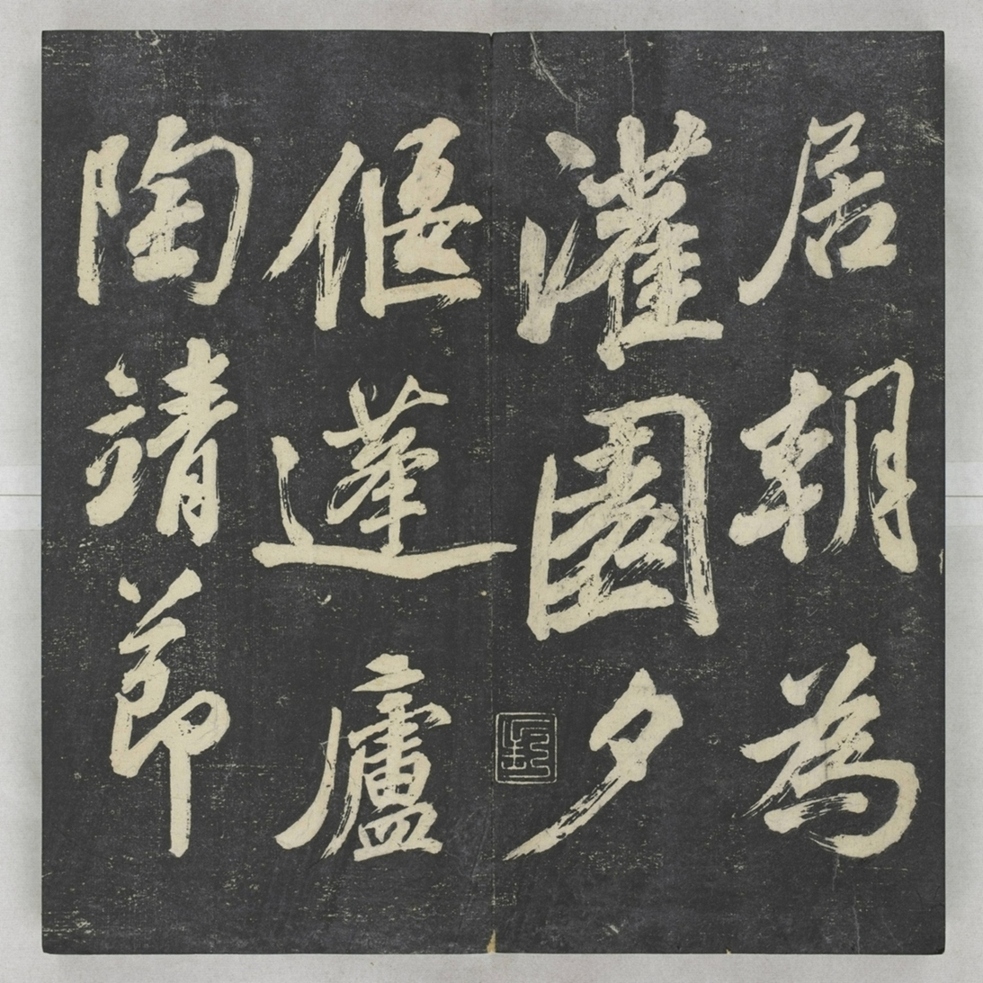 居朝為
灌園夕
偃蓬廬
陶靖節